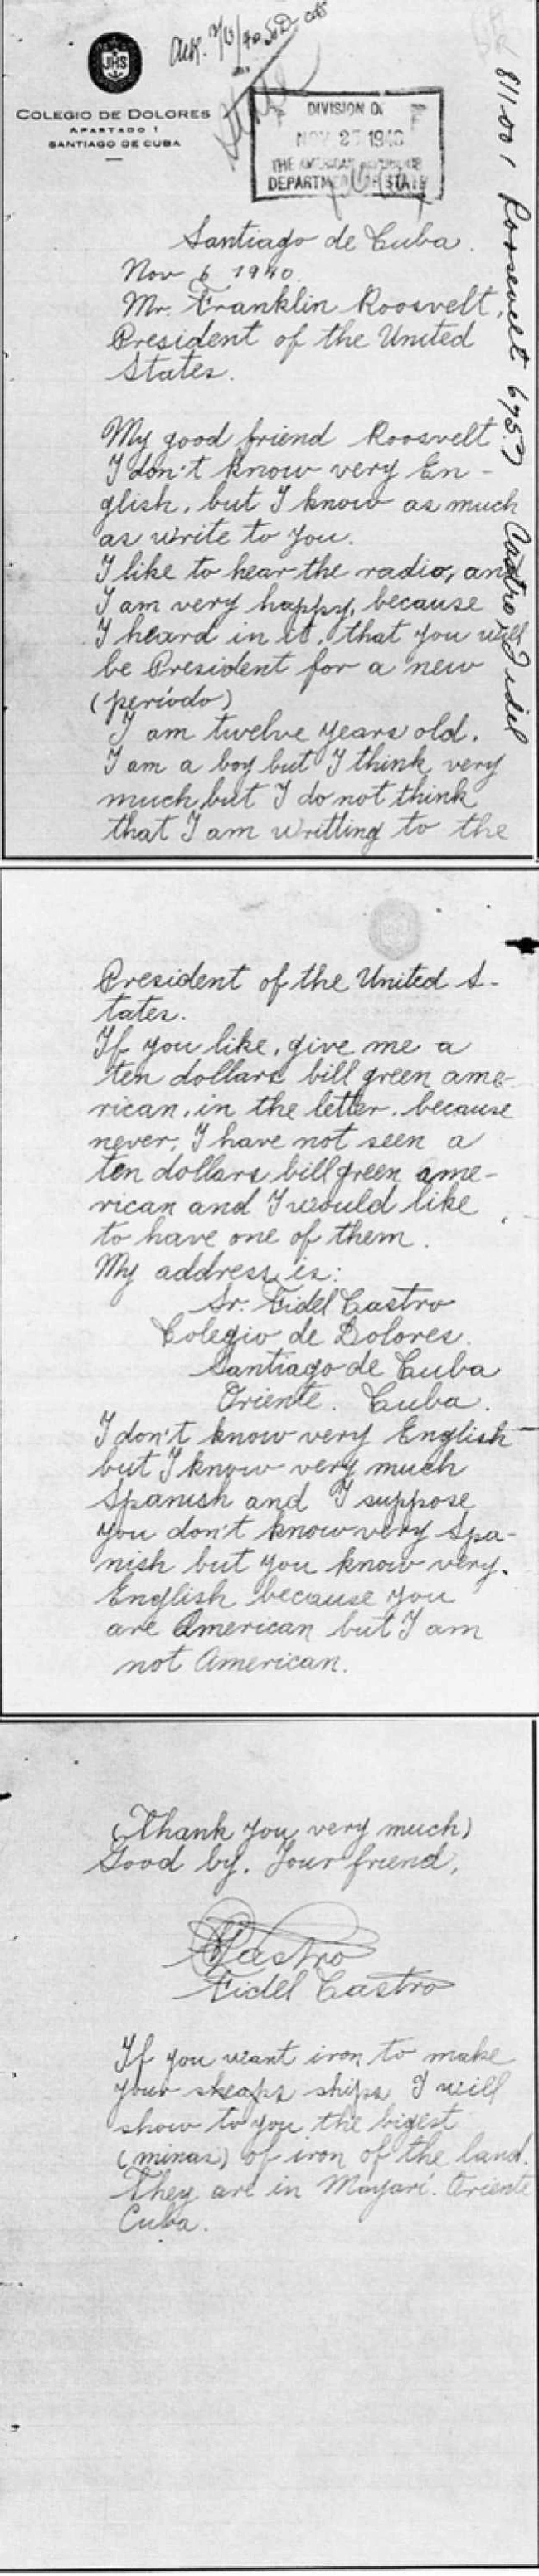 JHS
COLEGIO DE DOLORES
APARTADO 1
SANTIAGO DE CUBA
DIVISION OF
NOV 27 1940
THE AMERICAN REPUBLICS
DEPARTMENT OF STATE
811.001 Roosevelt
Castro, Fidel
Santiago de Cuba.
Nov 6 1940.
Mr. Franklin Roosvelt,
President of the United
States.
My good friend Roosvelt
I don't know very En-
glish, but I know as much
as write to you.
I like to hear the radio, and
I am very happy, because
I heard in it, that you will
be President for a new
(período)
I am twelve years old.
I am a boy but I think very
much but I do not think
that I am writting to the
President of the United S-
tates.
If you like, give me a
ten dollars bill green ame-
rican, in the letter, because
never, I have not seen a
ten dollars bill green ame-
rican and I would like
to have one of them.
My address is:
Sr. Fidel Castro
Colegio de Dolores.
Santiago de Cuba
Oriente. Cuba.
I don't know very English
but I know very much
Spanish and I suppose
you don't know very Spa-
nish but you know very.
English because you
are American but I am
not American.
(Thank you very much)
Good by. Your friend,
Castro
Fidel Castro
If you want iron to make
your sheaps ships I will
show to you the bigest
(minas) of iron of the land.
They are in Mayarí. Oriente
Cuba.